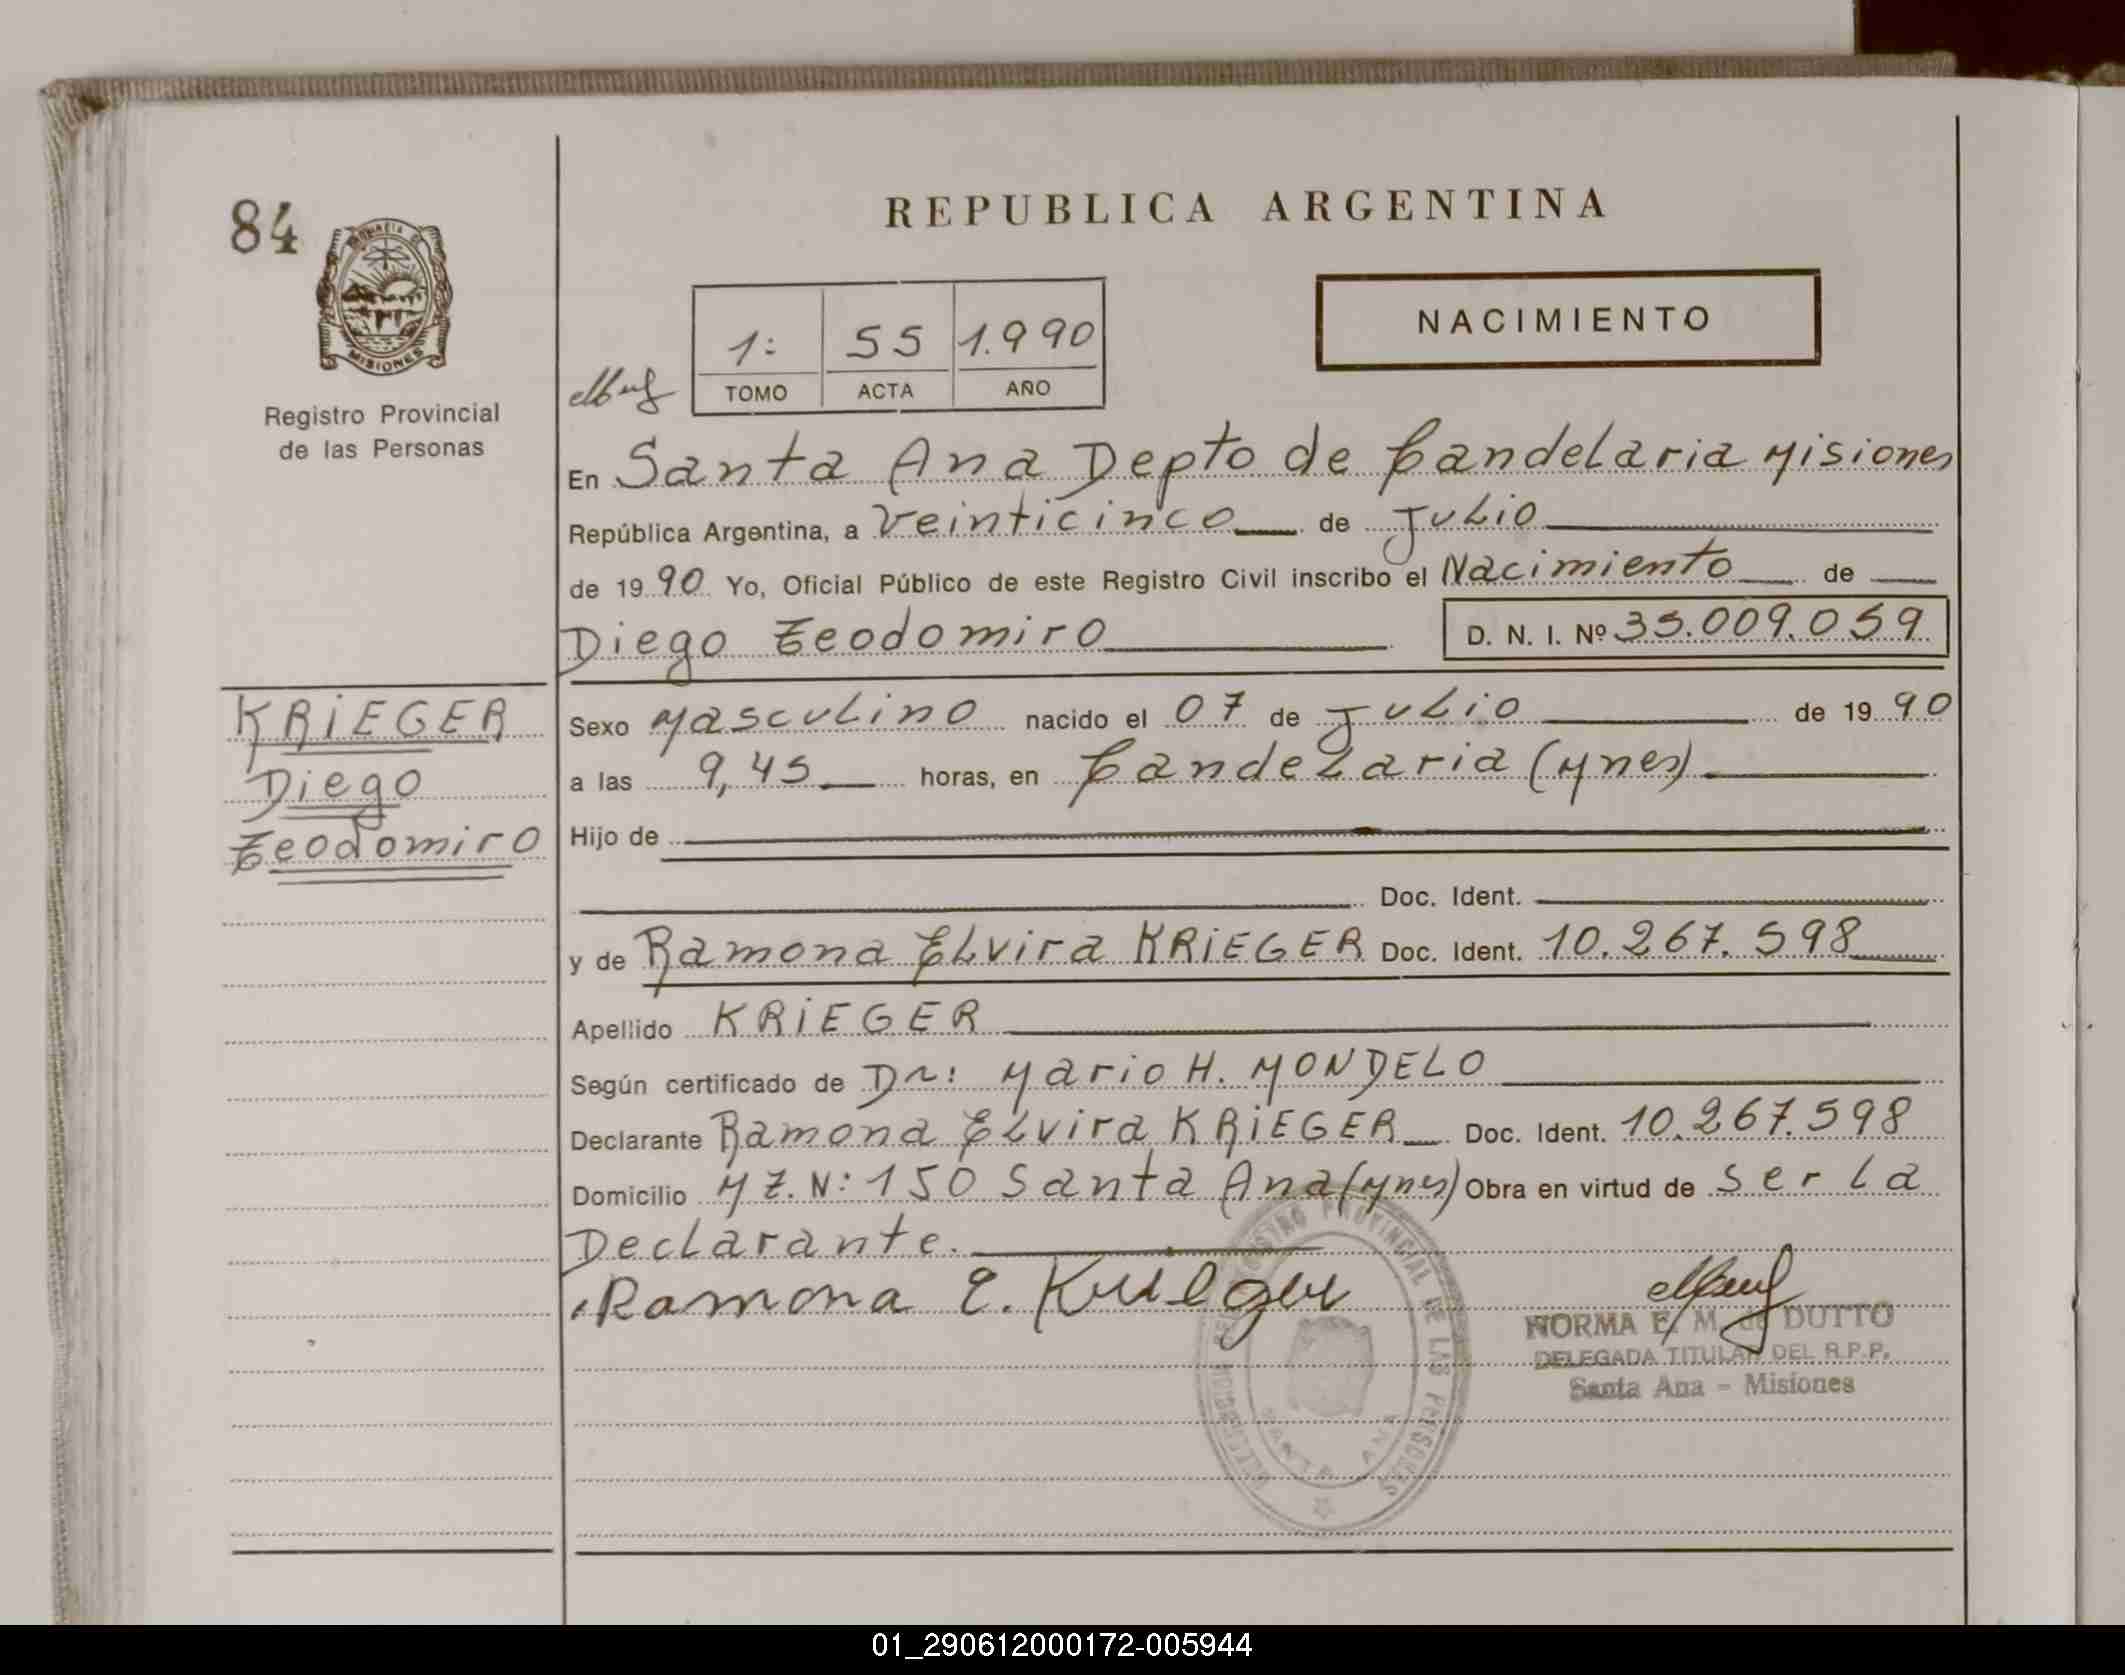 84
PROVINCIA DE
MISIONES
Registro Provincial
de las Personas
REPUBLICA ARGENTINA
1: 55 1.990
TOMO ACTA AÑO
NACIMIENTO
En Santa Ana Depto de Candelaria Misiones
República Argentina, a Veinticinco de Julio
de 1990 Yo, Oficial Público de este Registro Civil inscribo el Nacimiento de
Diego Teodomiro D. N. I. Nº 35.009.059
KRIEGER
Diego
Teodomiro
Sexo Masculino nacido el 07 de Julio de 1990
a las 9,45 horas, en Candelaria (Mnes)
Hijo de
Doc. Ident.
y de Ramona Elvira KRIEGER Doc. Ident. 10.267.598
Apellido KRIEGER
Según certificado de Dr: Mario H. MONDELO
Declarante Ramona Elvira KRIEGER Doc. Ident. 10.267.598
Domicilio MZ. N: 150 Santa Ana (Mnes) Obra en virtud de ser la
Declarante.
Ramona E. Krieger
REGISTRO PROVINCIAL DE LAS PERSONAS
SANTA ANA
NORMA E. M. de DUTTO
DELEGADA TITULAR DEL R.P.P.
Santa Ana - Misiones
01_290612000172-005944